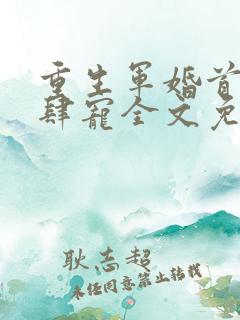 重生军婚首
肆宠全文免
耿志超
未经同意禁止转载